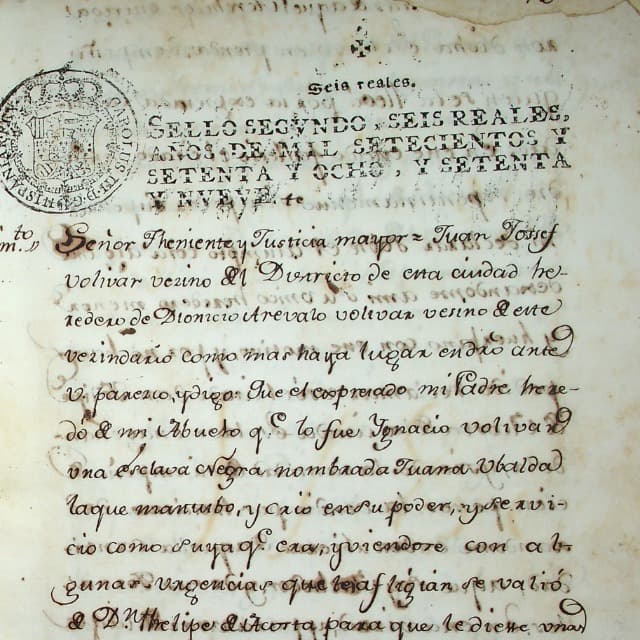 Seis reales.
SELLO SEGVNDO, SEIS REALES,
AÑOS DE MIL SETECIENTOS Y
SETENTA Y OCHO, Y SETENTA
Y NVEVE.
Señor Theniente y Justicia mayor = Juan Jossef
volivar vezino del Districto de esta ciudad he-
redero de Dionicio Arevalo volivar vesino de este
verindario como mas haya lugar en dro ante
v. parezco, y digo: Que el expresado mi Padre here-
dó de mi Abuelo q.e lo fue Ygnacio volivar
una esclava Negra nombrada Juana Ubalda
la que mantubo, y crio en su poder, y servi-
cio como suya q.e era, y viendose con al-
gunas urgencias que le afligian se valió
de D.n Phelipe de Acosta para que le diesse una